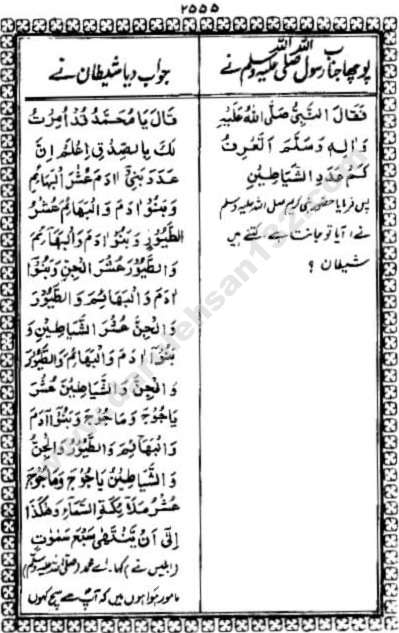 ۲۵۵۵
پوچھا جناب رسول اللہ صلی اللہ علیہ وسلم نے
فَقَالَ النَّبِيُّ صَلَّى اللهُ عَلَيْهِ
وَاٰلِهٖ وَسَلَّمَ اَتَعْرِفُ
كَمْ عَدَدُ الشَّيَاطِيْنِ
پس فرمایا حضور نبی کریم صلی اللہ علیہ وسلم
نے، آیا تو جانتا ہے کتنے ہیں
شیطان ؟
جواب دیا شیطان نے
قَالَ يَا مُحَمَّدُ قَدْ اُمِرْتُ
لَكَ بِالصِّدْقِ اِعْلَمْ اِنَّ
عَدَدَ بَنِيْ اٰدَمَ عُشْرُ الْبَهَائِمِ
وَبَنُوْ اٰدَمَ وَالْبَهَائِمُ عُشْرُ
الطُّيُوْرِ وَبَنُوْ اٰدَمَ وَالْبَهَائِمُ
وَالطُّيُوْرُ عُشْرُ الْجِنِّ وَبَنُوْا
اٰدَمَ وَالْبَهَائِمُ وَالطُّيُوْرُ
وَالْجِنُّ عُشْرُ الشَّيَاطِيْنِ وَ
بَنُوْا اٰدَمَ وَالْبَهَائِمُ وَالطُّيُوْرُ
وَالْجِنُّ وَالشَّيَاطِيْنُ عُشْرُ
يَاجُوْجَ وَمَاجُوْجَ وَبَنُوْا اٰدَمَ
وَالْبَهَائِمُ وَالطُّيُوْرُ وَالْجِنُّ
وَالشَّيَاطِيْنُ يَاجُوْجَ وَمَاجُوْجَ
عُشْرُ مَلَائِكَةِ السَّمَآءِ وَهٰكَذَا
اِلٰى اَنْ يَنْتَهٰى سَبْعَ سَمٰوٰتٍ
(ابلیس نے) کہا۔ اے محمد (صلی اللہ علیہ وسلم)
مامور ہوا ہوں میں کہ آپ سے سچ کہوں